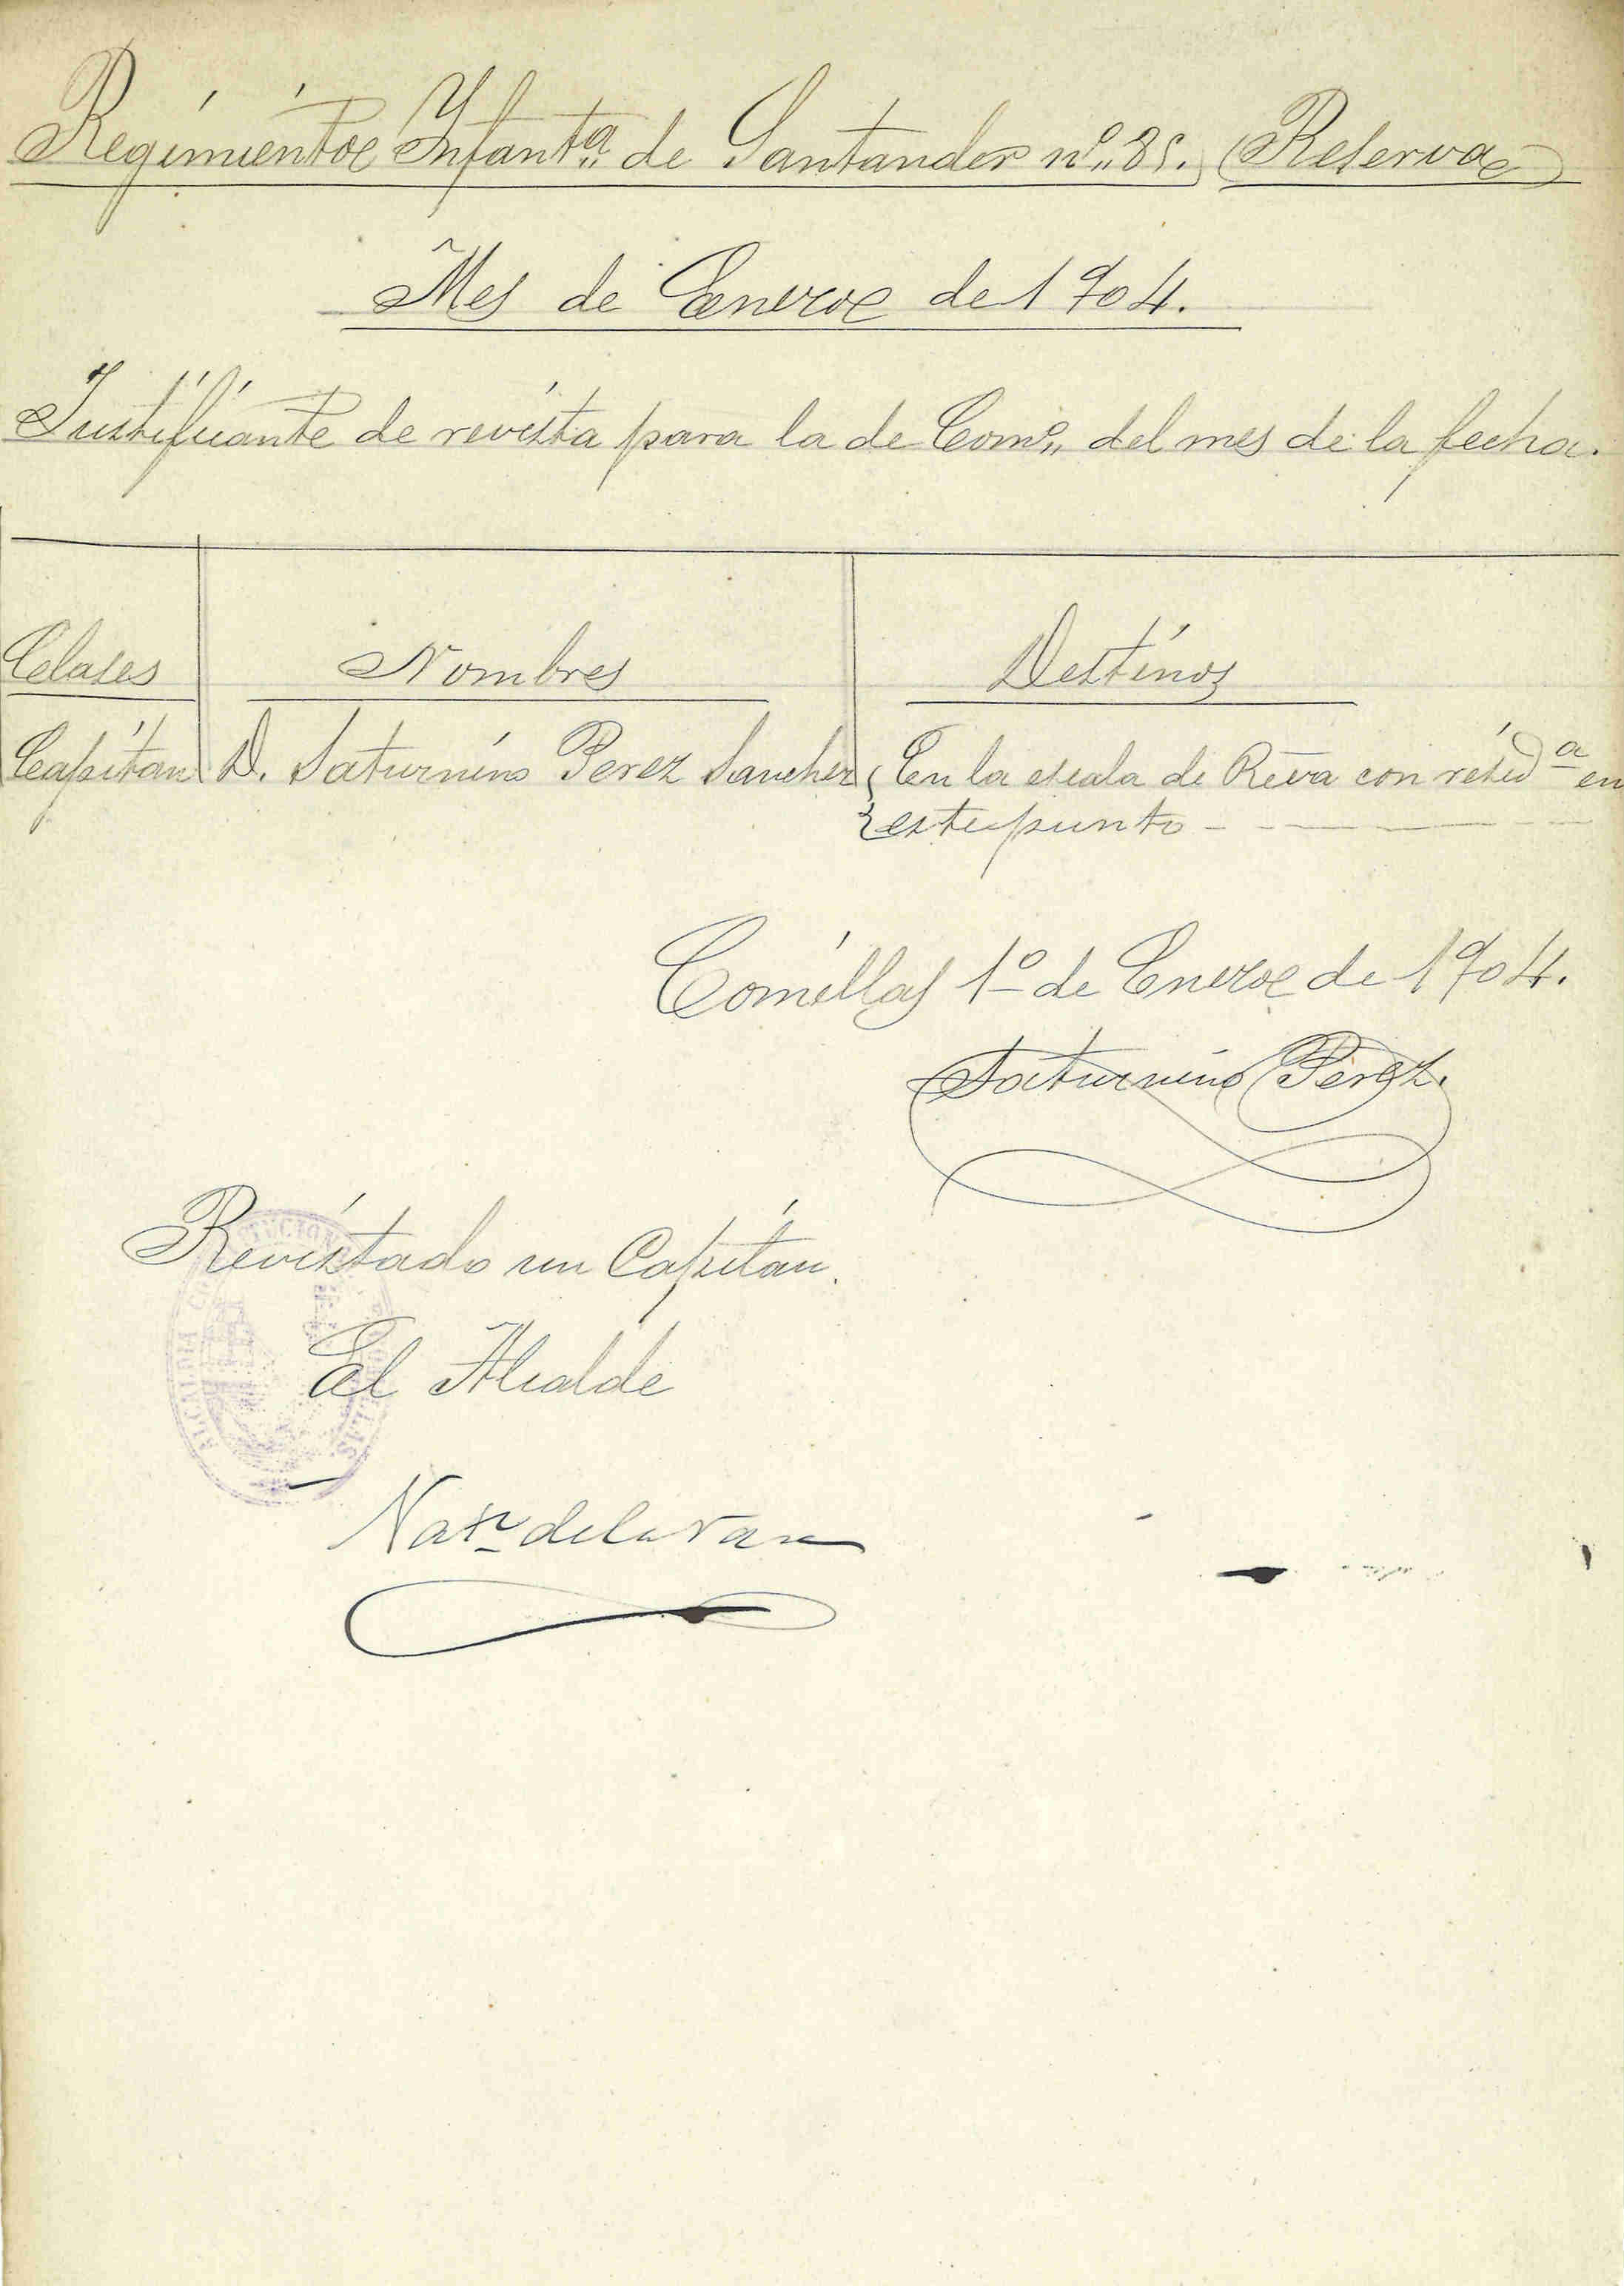 Regimiento Infantª de Santander nº 85. (Reserva)
Mes de Enero de 1904.
Justificante de revista para la de Comº del mes de la fecha.
Clases Nombres Destinos
Capitan D. Saturnino Perez Sanchez En la escala de Rva con residª en
este punto
Comillas 1º de Enero de 1904.
Saturnino Perez.
Revistado un Capitan.
El Alcalde
ALCALDIA